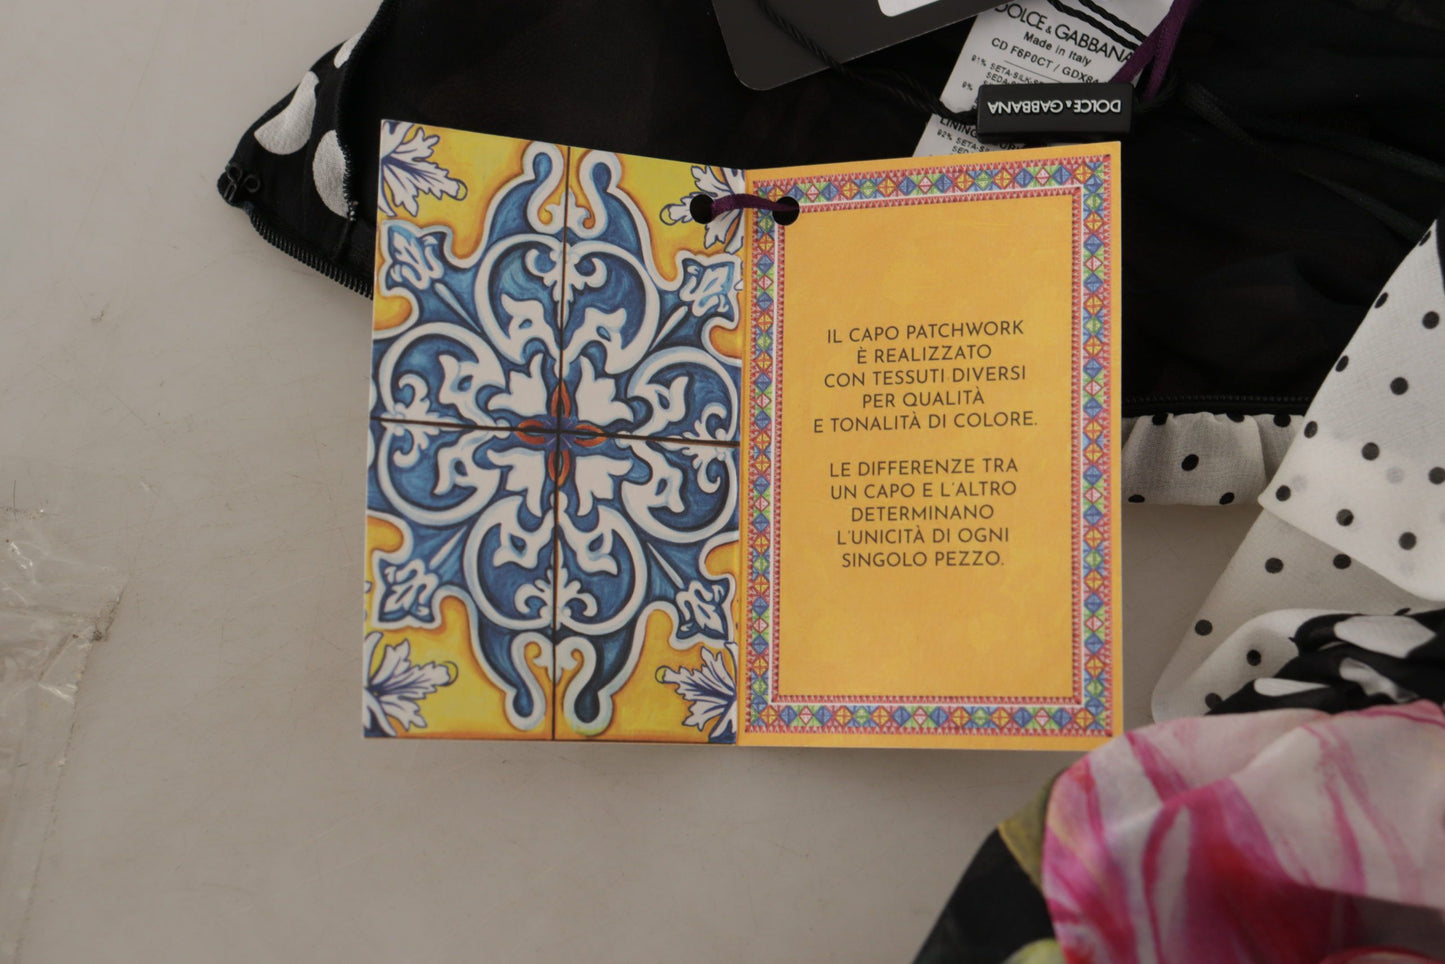 DOLCE & GABBANA
Made in Italy
CD F6P0CT / GDX8
91% SETA-SILK-S
DOLCE & GABBANA
IL CAPO PATCHWORK
È REALIZZATO
CON TESSUTI DIVERSI
PER QUALITÀ
E TONALITÀ DI COLORE.
LE DIFFERENZE TRA
UN CAPO E L'ALTRO
DETERMINANO
L'UNICITÀ DI OGNI
SINGOLO PEZZO.